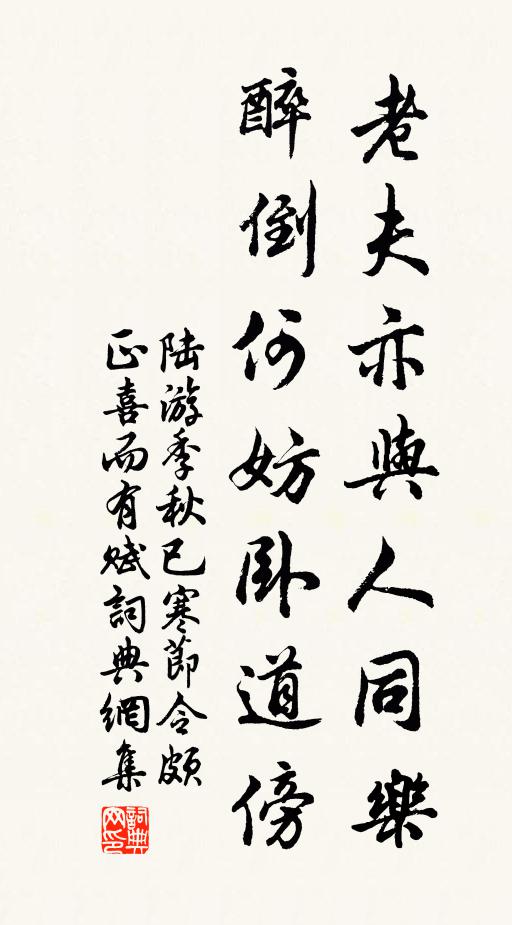 老夫亦與人同樂
醉倒何妨臥道傍
陆游季秋已寒節令頗
正喜而有赋詞典網集
詞典網印